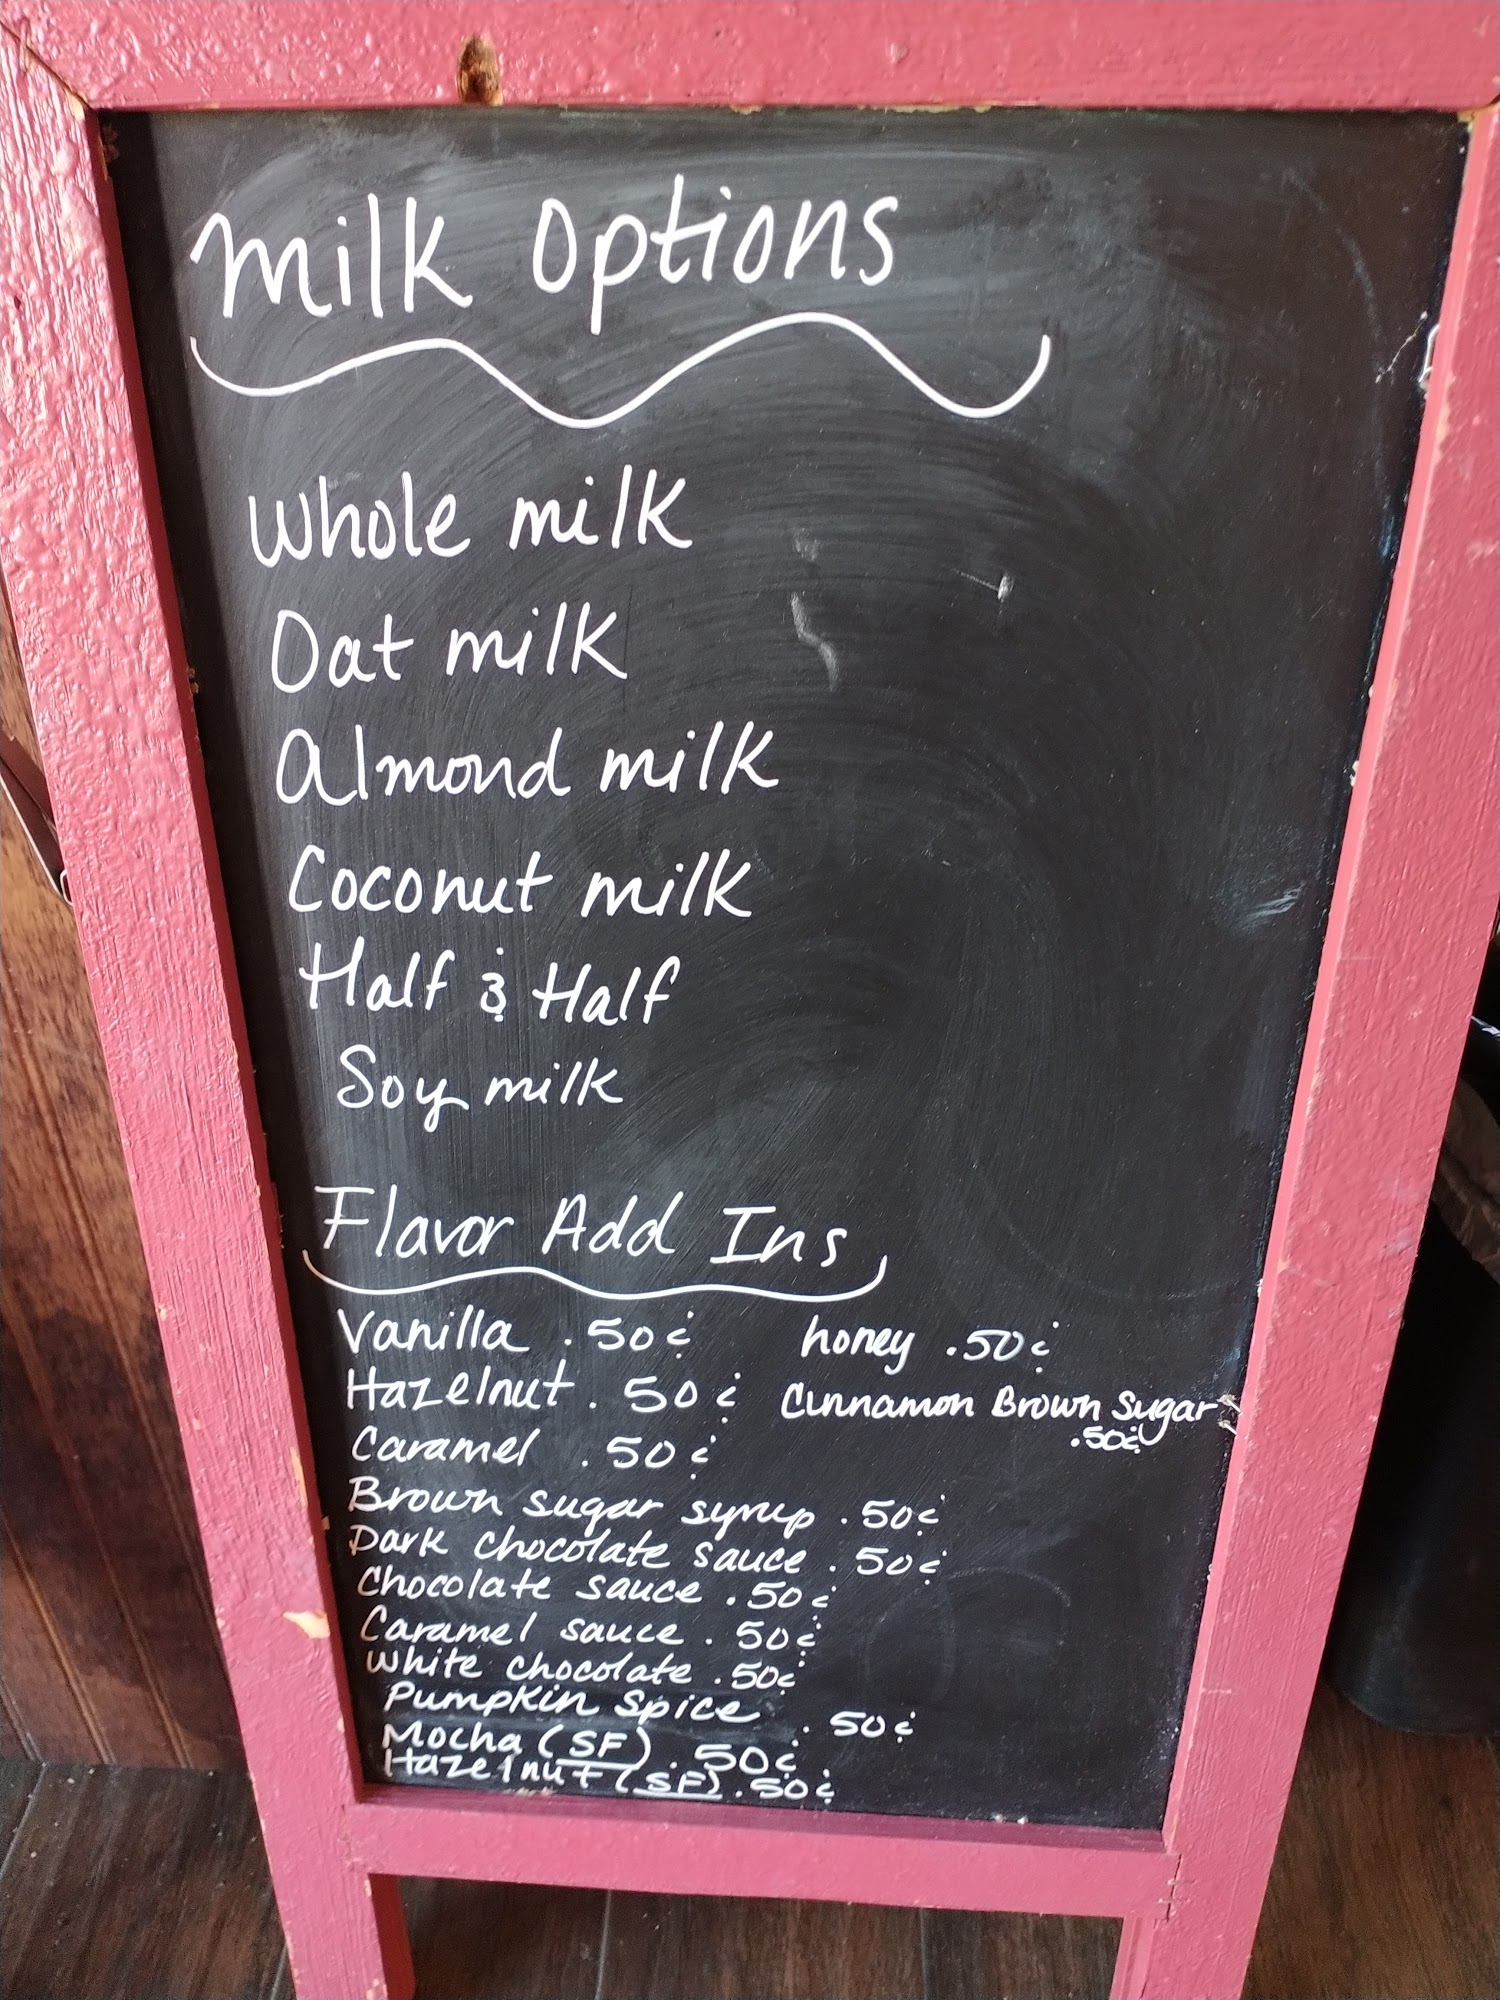 Milk Options
Whole milk
Oat milk
Almond milk
Coconut milk
Half & Half
Soy milk
Flavor Add Ins
Vanilla .50¢
Hazelnut .50¢
Caramel .50¢
Brown sugar syrup .50¢
Dark chocolate sauce .50¢
Chocolate sauce .50¢
Caramel sauce .50¢
White chocolate .50¢
Pumpkin Spice .50¢
Mocha (SF) .50¢
Hazelnut (SF) .50¢
honey .50¢
Cinnamon Brown Sugar
.50¢